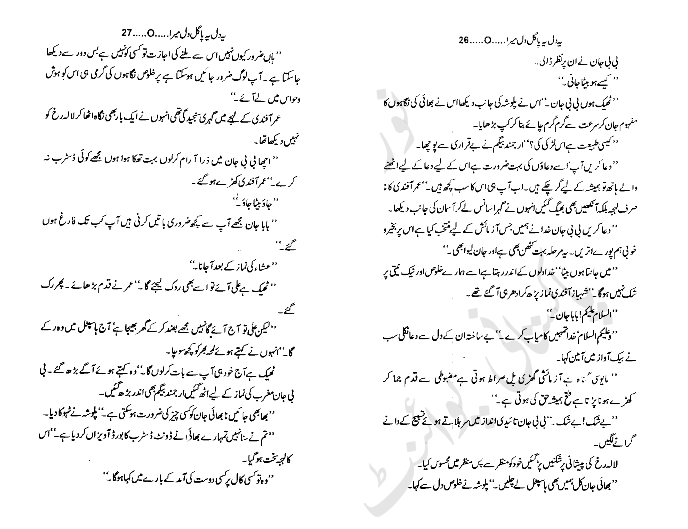 یہ دل یہ پاگل دل میرا.....O.....26
بی بی جان نے ان پر نظر ڈالی۔
’’کیسے ہو بیٹا جانی۔‘‘
’’ٹھیک ہوں بی بی جان۔‘‘ اس نے پلوشہ کی جانب دیکھا اس نے بھائی کی نگاہوں کا
مفہوم جان کر سرعت سے گرم گرم چائے بنا کر کپ بڑھایا۔
’’کیسی طبیعت ہے اس لڑکی کی؟‘‘ ارجمند بیگم نے بے قراری سے پوچھا۔
’’دعا کریں آپ‘ اسے دعاؤں کی بہت ضرورت ہے اس کے لیے دعا کے لیے اٹھنے
والے ہاتھ تو ہمیشہ کے لیے گر چکے ہیں۔ اب آپ ہی اس کا سب کچھ ہیں۔‘‘ عمر آفندی کا نہ
صرف لہجہ بلکہ آنکھیں بھی بھیگ گئیں انہوں نے گہرا سانس لے کر آسمان کی جانب دیکھا۔
’’دعا کریں بی بی جان خدا نے ہمیں جس آزمائش کے لیے منتخب کیا ہے اس پر بخیر و
خوبی ہم پورے اتریں۔ یہ مرحلہ بہت کٹھن بھی ہے اور جان لیوا بھی۔‘‘
’’میں جانتا ہوں بیٹا‘ خدا دلوں کے اندر رہتا ہے اسے ہمارے خلوص اور نیک نیتی پر
شک نہیں ہوگا۔‘‘ شہباز آفندی نماز پڑھ کر ادھر ہی آ گئے تھے۔
’’السلام علیکم! بابا جان۔‘‘
’’وعلیکم السلام‘ خدا تمہیں کامیاب کرے۔‘‘ بے ساختہ ان کے دل سے دعا نکلی سب
نے بیک آواز میں آمین کہا۔
’’مایوسی گناہ ہے آزمائشی گھڑی پل صراط ہوتی ہے مضبوطی سے قدم جما کر
کھڑے ہونا پڑتا ہے فتح ہمیشہ حق کی ہوتی ہے۔‘‘
’’بے شک! بے شک۔‘‘ بی بی جان تائیدی انداز میں سر ہلاتے ہوئے تسبیح کے دانے
گرانے لگیں۔
لالہ رخ کی پیشانی پر شکنیں پڑ گئیں خود کو منظر سے پس منظر میں محسوس کیا۔
’’بھائی جان کل ہمیں بھی ہاسپٹل لے چلیں۔‘‘ پلوشہ نے خلوص دل سے کہا۔
یہ دل یہ پاگل دل میرا.....O.....27
’’ہاں ضرور کیوں نہیں اس سے ملنے کی اجازت تو کسی کو نہیں ہے بس دور سے دیکھا
جا سکتا ہے۔ آپ لوگ ضرور جائیں ہو سکتا ہے پر خلوص نگاہوں کی گرمی ہی اس کو ہوش
و حواس میں لے آئے۔‘‘
عمر آفندی کے لہجے میں گہری سنجیدگی تھی انہوں نے ایک بار بھی نگاہ اٹھا کر لالہ رخ کو
نہیں دیکھا تھا۔
’’اچھا بی بی جان میں ذرا آرام کر لوں بہت تھکا ہوا ہوں مجھے کوئی ڈسٹرب نہ
کرے۔‘‘ عمر آفندی کھڑے ہو گئے۔
’’جاؤ بیٹا جاؤ۔‘‘
’’بابا جان مجھے آپ سے کچھ ضروری باتیں کرنی ہیں آپ کب تک فارغ ہوں
گے۔‘‘
’’عشاء کی نماز کے بعد آ جانا۔‘‘
’’ٹھیک ہے علی آئے تو اسے بھی روک لیجئے گا۔‘‘ عمر نے قدم بڑھائے۔ پھر رک
گئے۔
’’لیکن علی تو آج آئے گا نہیں مجھے بضد کر کے گھر بھیجا ہے آج ہاسپٹل میں وہ رکے
گا۔‘‘ انہوں نے کہتے ہوئے لمحہ بھر کو کچھ سوچا۔
’’ٹھیک ہے آج خود ہی آپ سے بات کر لوں گا۔‘‘ وہ کہتے ہوئے آگے بڑھ گئے۔ بی
بی جان مغرب کی نماز کے لیے اٹھ گئیں ارجمند بیگم بھی اندر بڑھ گئیں۔
’’بھابھی جائیں! بھائی جان کو کسی چیز کی ضرورت ہو سکتی ہے۔‘‘ پلوشہ نے ٹہوکا دیا۔
’’تم نے سنا نہیں تمہارے بھائی نے ڈونٹ ڈسٹرب کا بورڈ آویزاں کر دیا ہے۔‘‘ اس
کا لہجہ سخت ہو گیا۔
’’وہ تو کسی کال پر کسی دوست کی آمد کے بارے میں کہا ہوگا۔‘‘